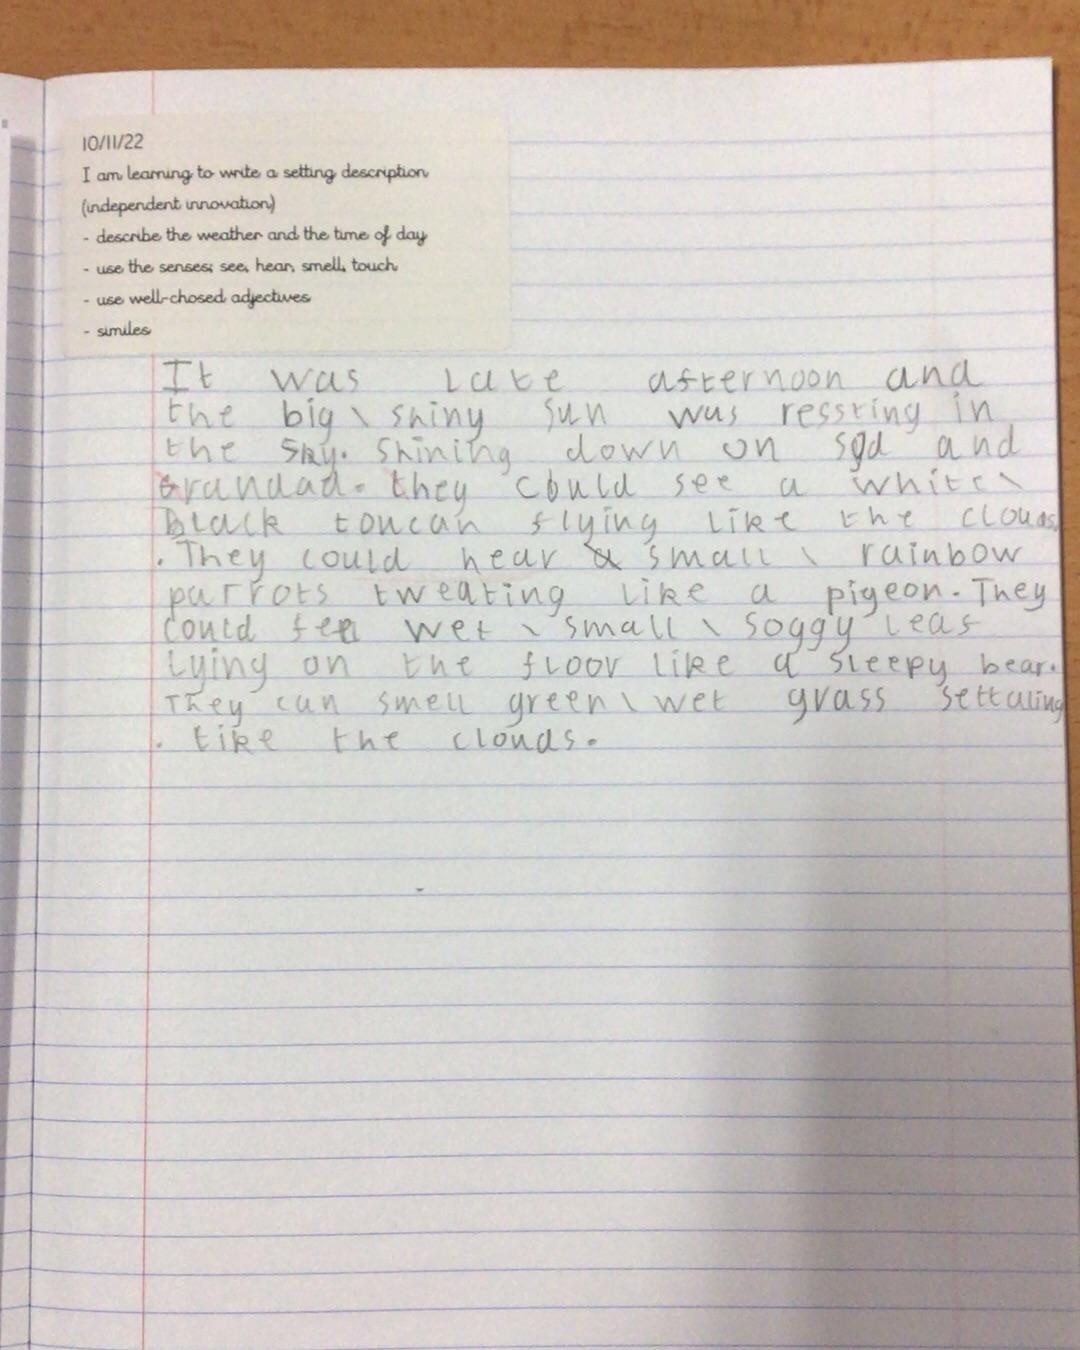 10/11/22
I am learning to write a setting description
(independent innovation)
- describe the weather and the time of day
- use the senses; see, hear, smell, touch
- use well-chosed adjectives
- similes
It was late afternoon and
the big \ shiny sun was ressting in
the sky. Shining down on syd and
Grandad. they could see a white \
black toucan flying like the clouds
. They could hear small \ rainbow
parrots tweating like a pigeon. They
could feel wet \ small \ soggy leaf
lying on the floor like a sleepy bear.
They can smell green \ wet grass settaling
. like the clouds.